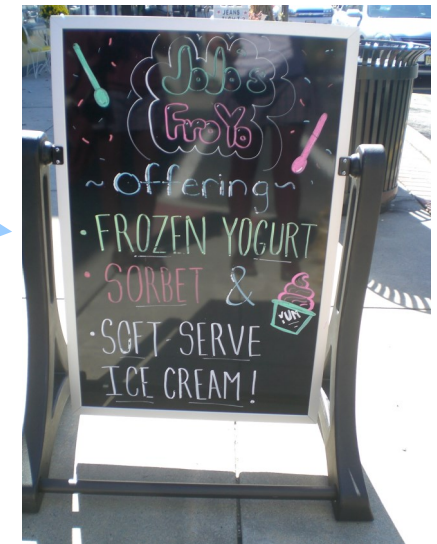 JEANS
JoJo's
FroYo
~ offering ~
· FROZEN YOGURT
· SORBET &
YUM
· SOFT SERVE
ICE CREAM!